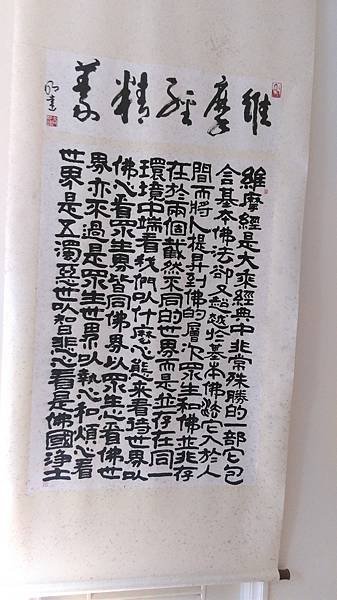 維摩經精義
維摩經是大乘經典中非常殊勝的一部它包
含基本佛法卻又超越出基本佛法它入於人
間而將人提昇到佛的層次眾生和佛並非存
在於兩個截然不同的世界而是並存在同一
環境中端看我們以什麼心態來看待世界以
佛心看眾生界皆同佛界以眾生心看佛世
界亦不過是眾生世界以執心和煩心看
世界是五濁惡世以智悲心看是佛國淨土